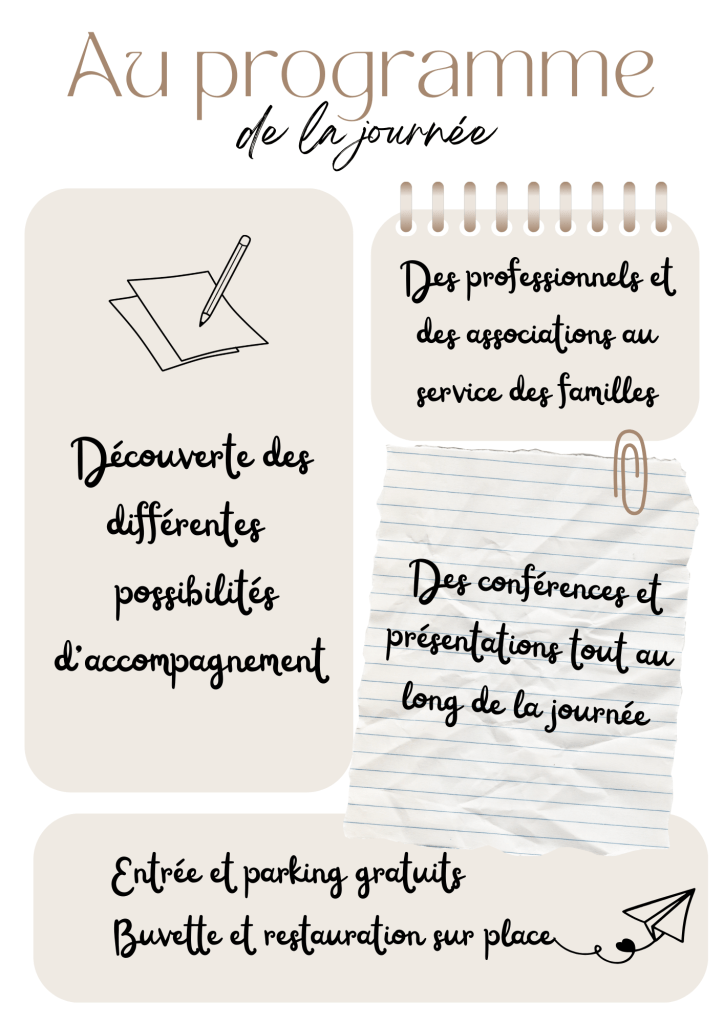 Au programme
de la journée
Découverte des
différentes
possibilités
d'accompagnement
Des professionnels et
des associations au
service des familles
Des conférences et
présentations tout au
long de la journée
Entrée et parking gratuits
Buvette et restauration sur place